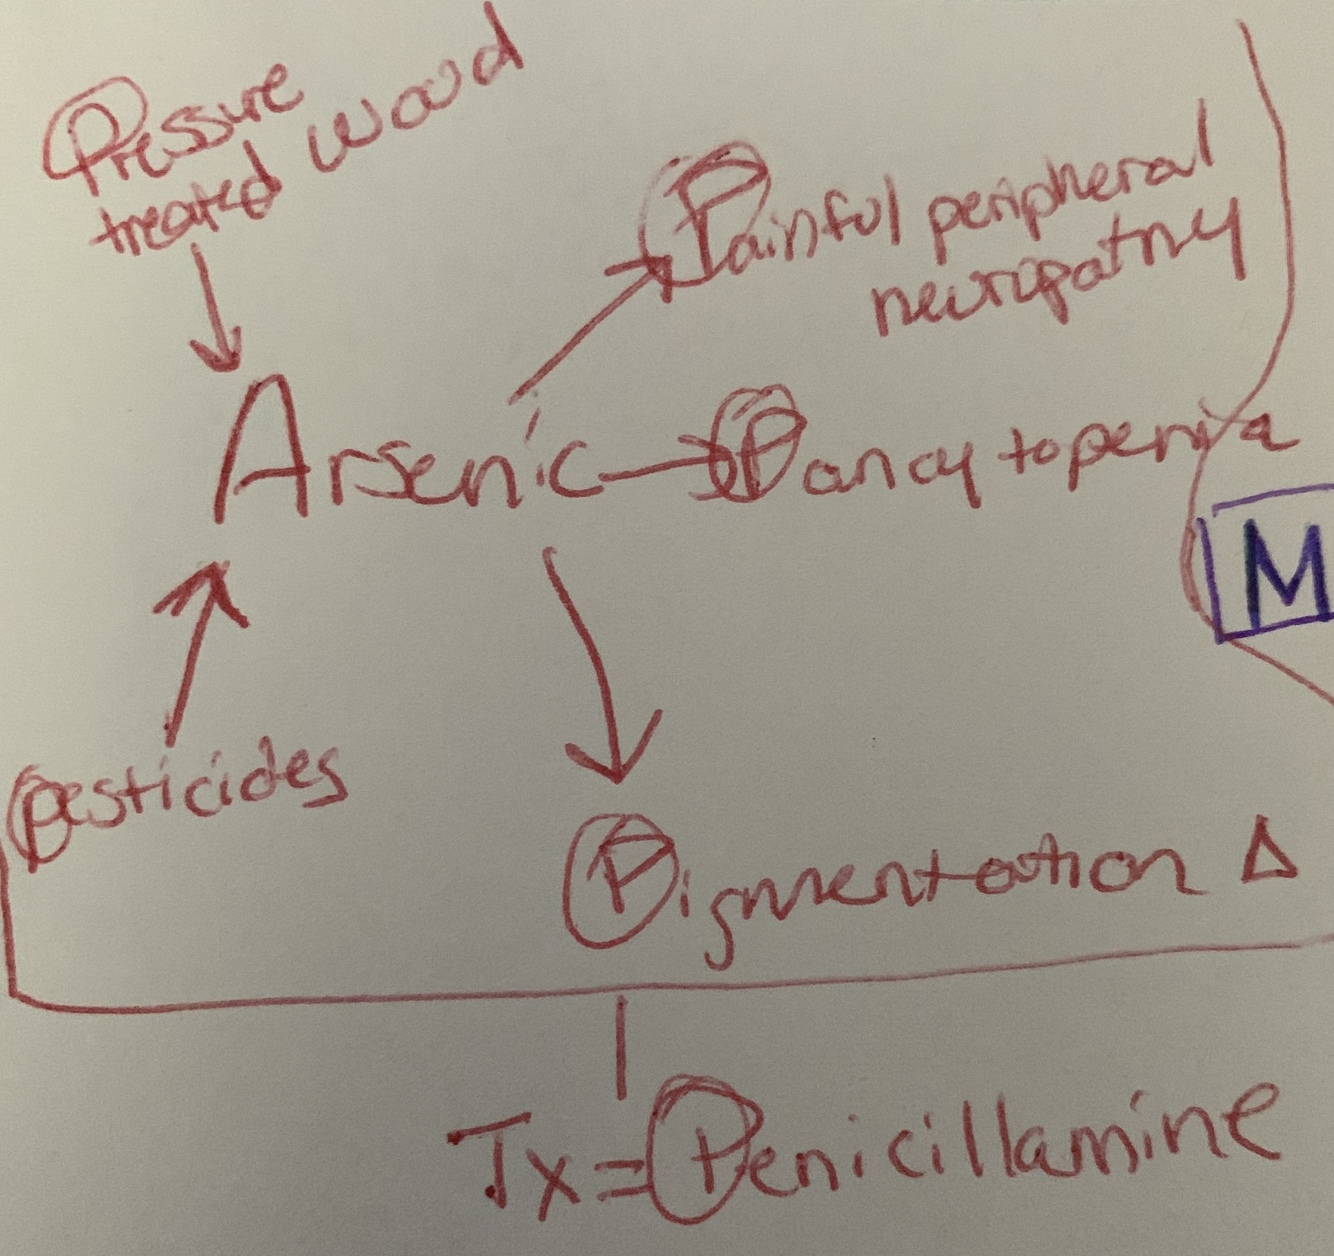 Pressure
treated wood
Painful peripheral
neuropathy
Arsenic
Pancytopenia
M
Pesticides
Pigmentation Δ
Tx = Penicillamine